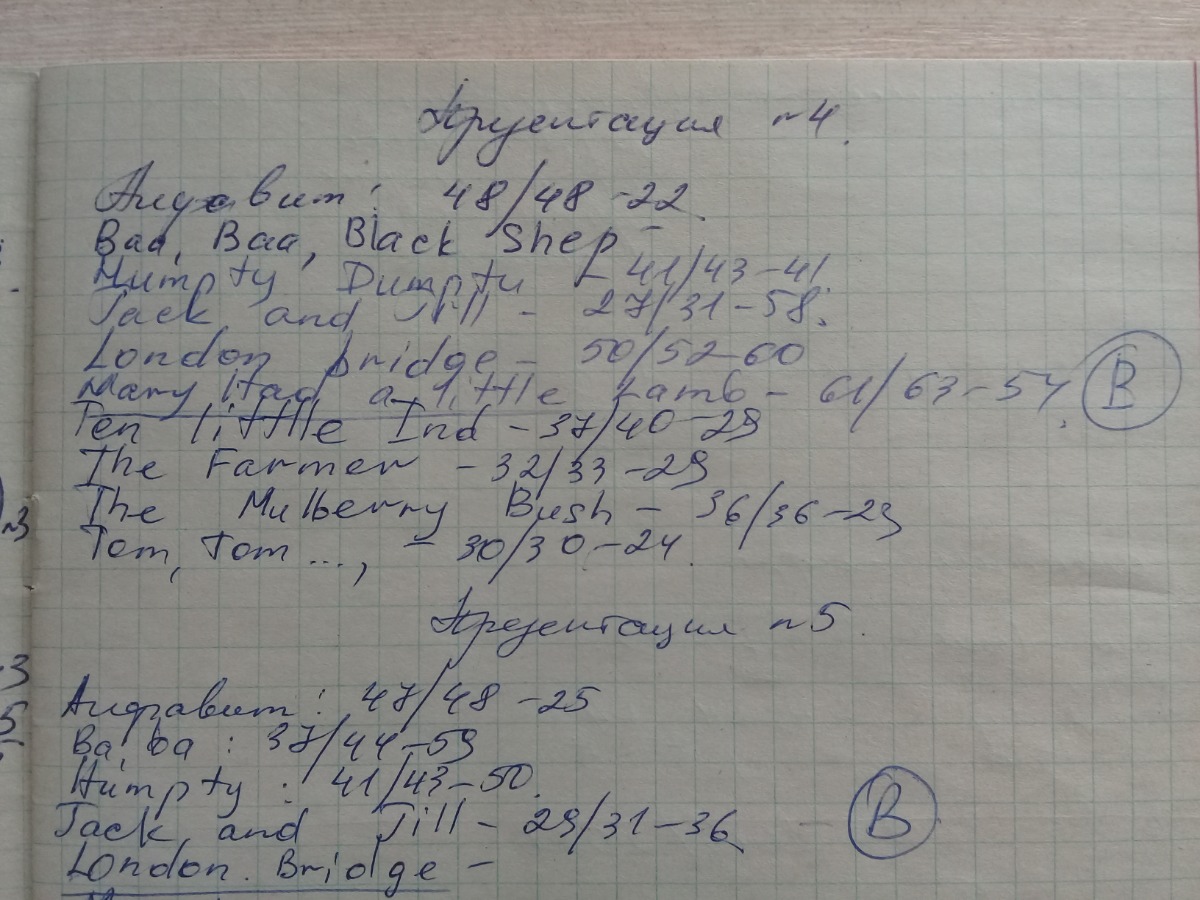 Презентация n4.
Алфавит: 48/48-22.
Baa, Baa, Black Shep -
Humpty Dumpty - 41/43-41
Jack and Jill - 27/31-58.
London bridge - 50/52-60
Mary Had a little Lamb - 61/63-57. B
Ten little Ind - 37/40-29
The Farmer - 32/33-29
The Mulberry Bush - 36/36-23
Tom, Tom ..., - 30/30-24.
Презентация n5.
Алфавит: 47/48-25
Ba, ba: 37/44-59
Humpty: 41/43-50.
Jack and Jill - 29/31-36 - B
London. Bridge -
n3
3
5